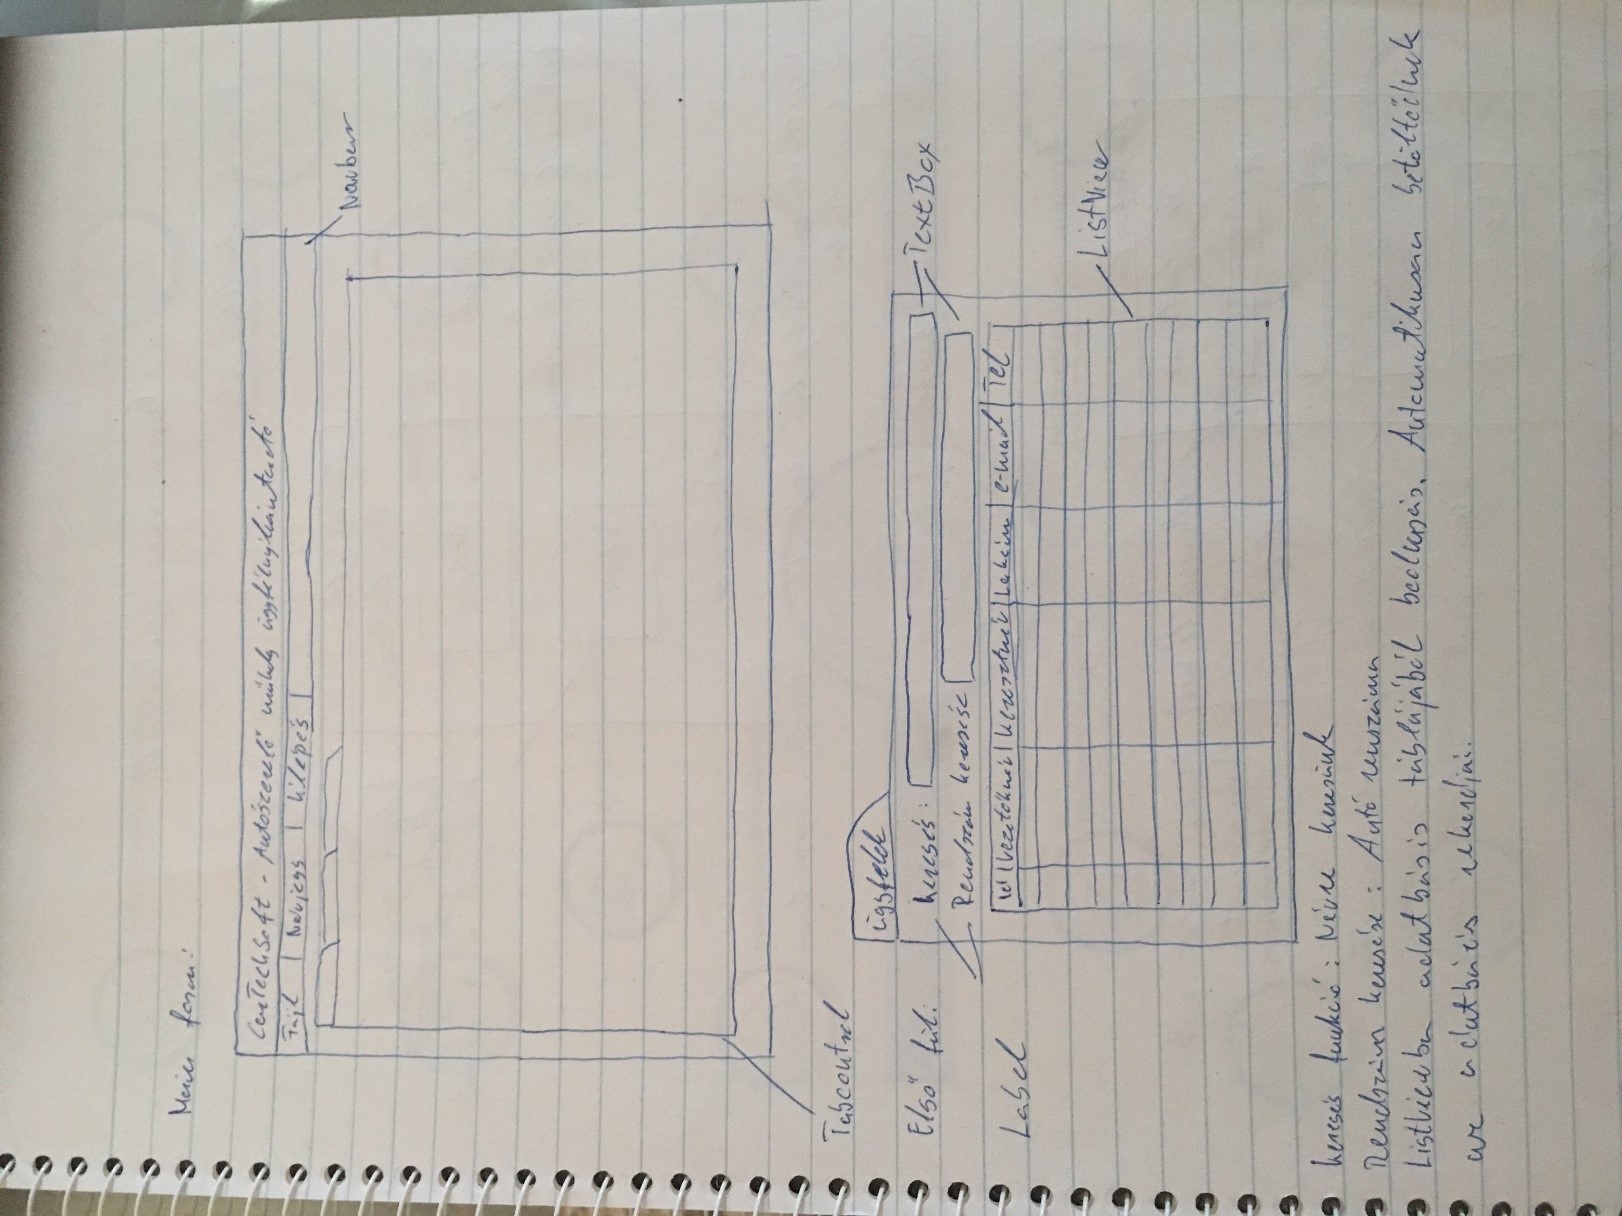 Main form:
CarTechSoft - Autószerelő műhely ügyfélnyilvántartó
Fájl | Névjegy | Kilépés |
Navbar
Tabcontrol
ügyfelek
Első fül:
Keresés:
TextBox
Rendszám keresése
Label
Id | Vezetéknév | Keresztnév | Lakcím | e-mail | Tel
ListView
Keresés funkció: Névre keresünk
Rendszám keresése: Autó renszáma
Listviewba adatbázis táblájából beolvasás. Automatikusan betöltődnek
az adatbázis rekordjai.